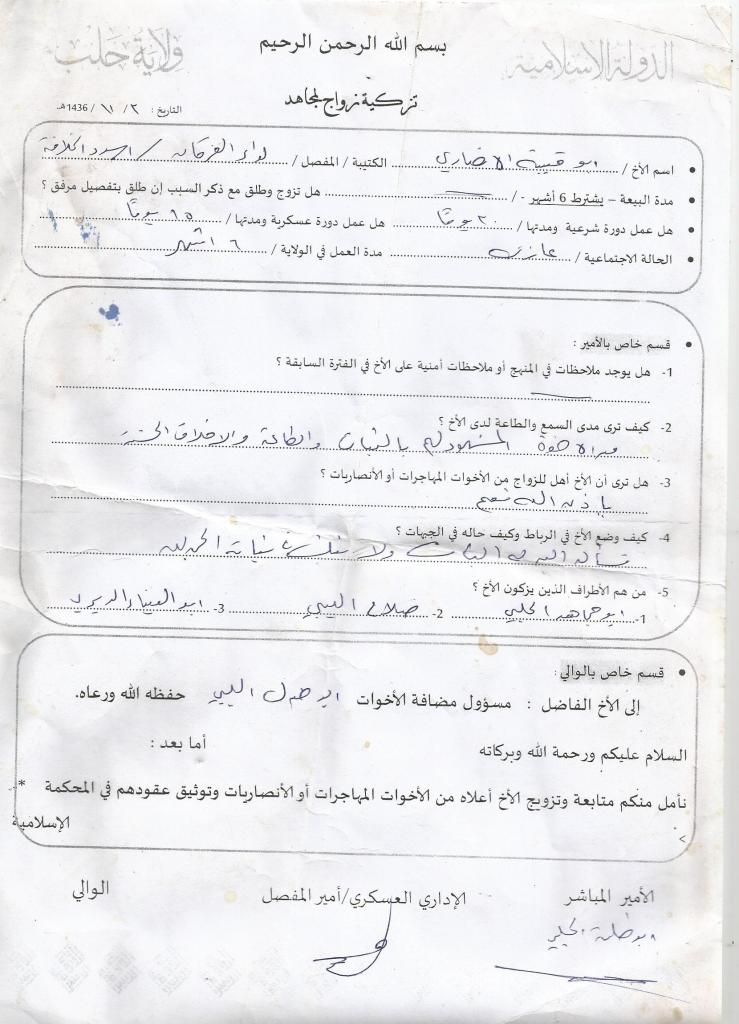 بسم الله الرحمن الرحيم
الدولة الإسلامية
ولاية حلب
تزكية زواج لمجاهد
التاريخ : ٢ / ١١ / 1436هـ
اسم الأخ / ابو قتيبة الانصاري الكتيبة / المفصل / لواء الفرقان / اسود الخلافة
مدة البيعة – يشترط 6 أشهر - / هل تزوج وطلق مع ذكر السبب إن طلق بتفصيل مرفق ؟
هل عمل دورة شرعية ومدتها / ٢٠ يومًا هل عمل دورة عسكرية ومدتها / ١٥ يومًا
الحالة الاجتماعية / عازب مدة العمل في الولاية / ٦ اشهر
قسم خاص بالأمير :
1- هل يوجد ملاحظات في المنهج أو ملاحظات أمنية على الأخ في الفترة السابقة ؟
2- كيف ترى مدى السمع والطاعة لدى الأخ ؟
من الاخوة المشهود لهم بالثبات والطاعة والاخلاق الحسنة
3- هل ترى أن الأخ أهل للزواج من الأخوات المهاجرات أو الأنصاريات ؟
باذن الله نعم
4- كيف وضع الأخ في الرباط وكيف حاله في الجبهات ؟
نسأل الله الثبات ولا الحمدلله
5- من هم الأطراف الذين يزكون الأخ ؟
1- ابو مجاهد الحلبي 2- صلاح الليبي 3- ابو
قسم خاص بالوالي :
إلى الأخ الفاضل : مسؤول مضافة الأخوات ابو الليبي حفظه الله ورعاه.
السلام عليكم ورحمة الله وبركاته أما بعد :
نأمل منكم متابعة وتزويج الأخ أعلاه من الأخوات المهاجرات أو الأنصاريات وتوثيق عقودهم في المحكمة *
الإسلامية >
الأمير المباشر الإداري العسكري/أمير المفصل الوالي
ابو طلحة الحلبي